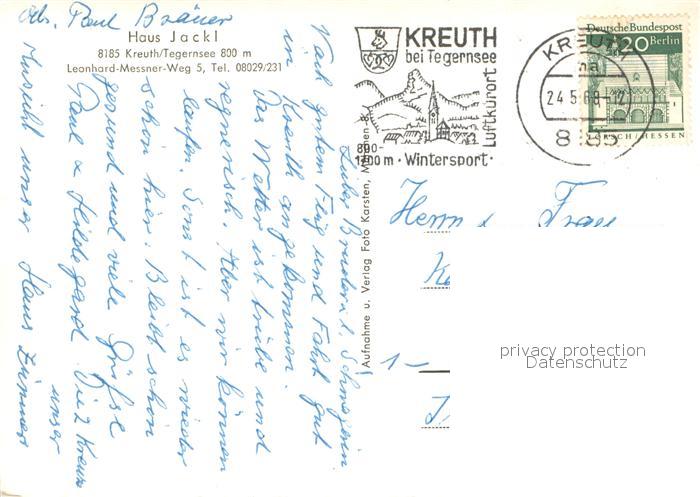 Abs. Paul Bräuer
Haus Jackl
8185 Kreuth/Tegernsee 800 m
Leonhard-Messner-Weg 5, Tel. 08029/231
KREUTH
bei Tegernsee
Luftkurort
800-
1700 m · Wintersport ·
KREUTH
24.5.68-12
8185
Deutsche Bundespost
20 Berlin
LORSCH/HESSEN
Lieber Bruder u. Schwägerin
Nach gutem Flug und Fahrt gut
in Kreuth angekommen.
Das Wetter ist trübe und
regnerisch. Aber wir können
laufen. Sonst ist es wieder
schön hier. Bleibt schön
gesund und viele Grüße
Paul & Hildegard. Die 2 Kreuze
unser
Ansicht unser Haus Zimmer
Aufnahme u. Verlag Foto Karsten, München 8
Herrn u. Frau
1-
privacy protection
Datenschutz